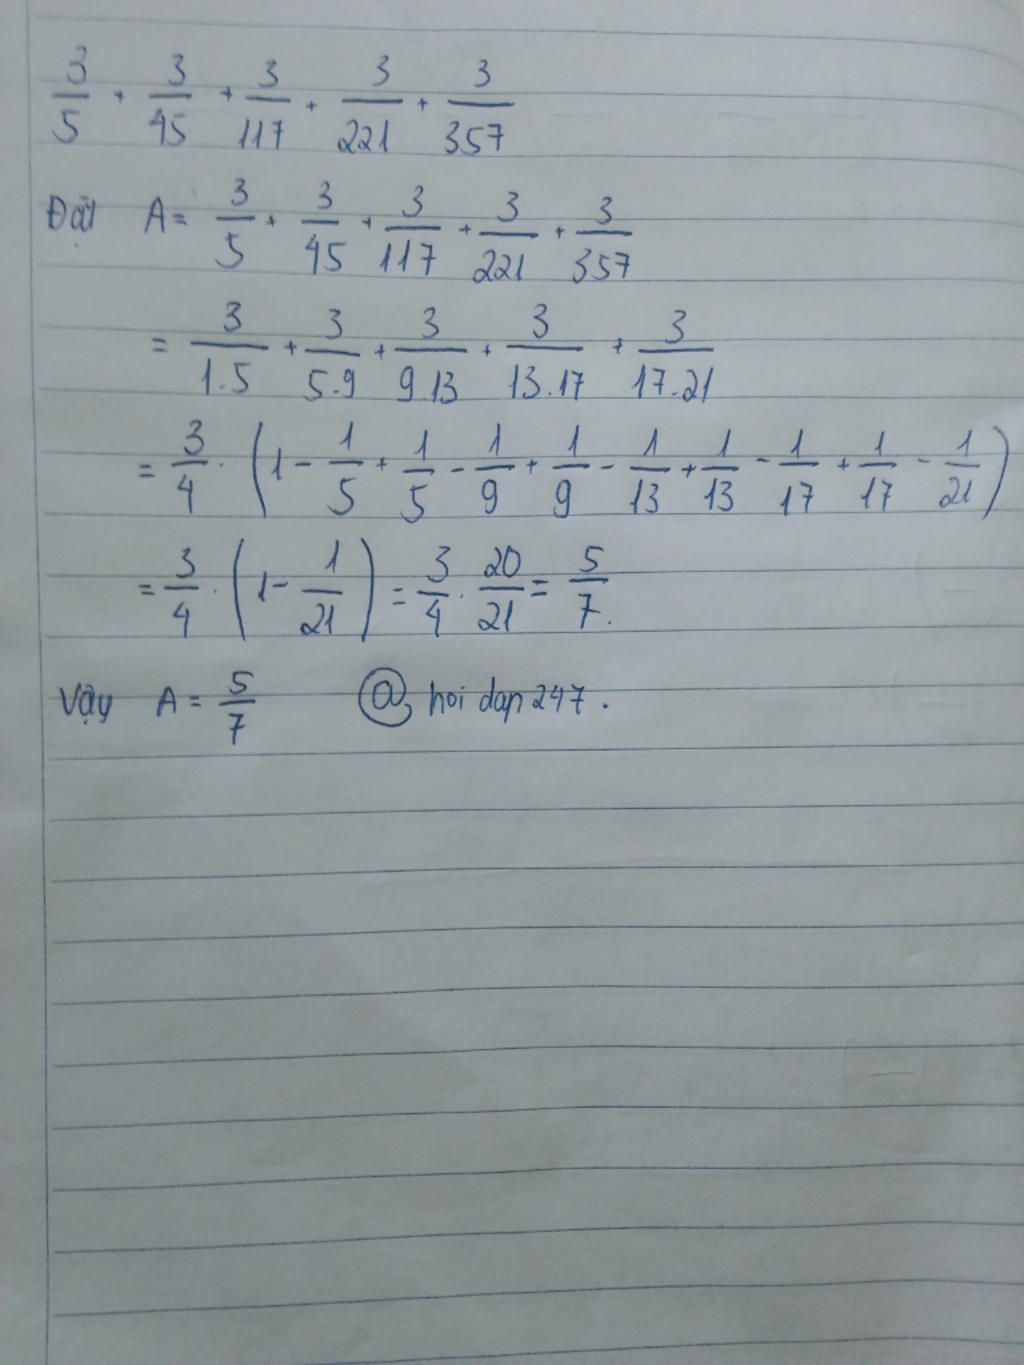 3/5 + 3/45 + 3/117 + 3/221 + 3/357
Đặt A = 3/5 + 3/45 + 3/117 + 3/221 + 3/357
= 3/1.5 + 3/5.9 + 3/9.13 + 3/13.17 + 3/17.21
= 3/4 . (1 - 1/5 + 1/5 - 1/9 + 1/9 - 1/13 + 1/13 - 1/17 + 1/17 - 1/21)
= 3/4 . (1 - 1/21) = 3/4 . 20/21 = 5/7.
Vậy A = 5/7 @ hoi dap 247.